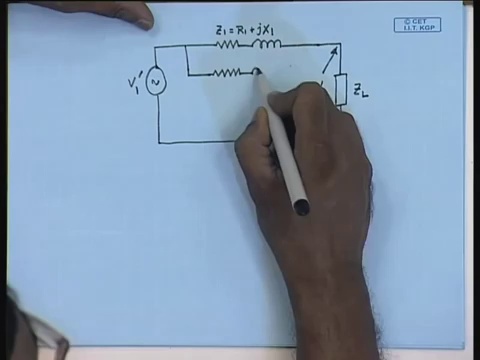 © CET
I.I.T. KGP
Z1 = R1 + jX1
V1'
~
ZL